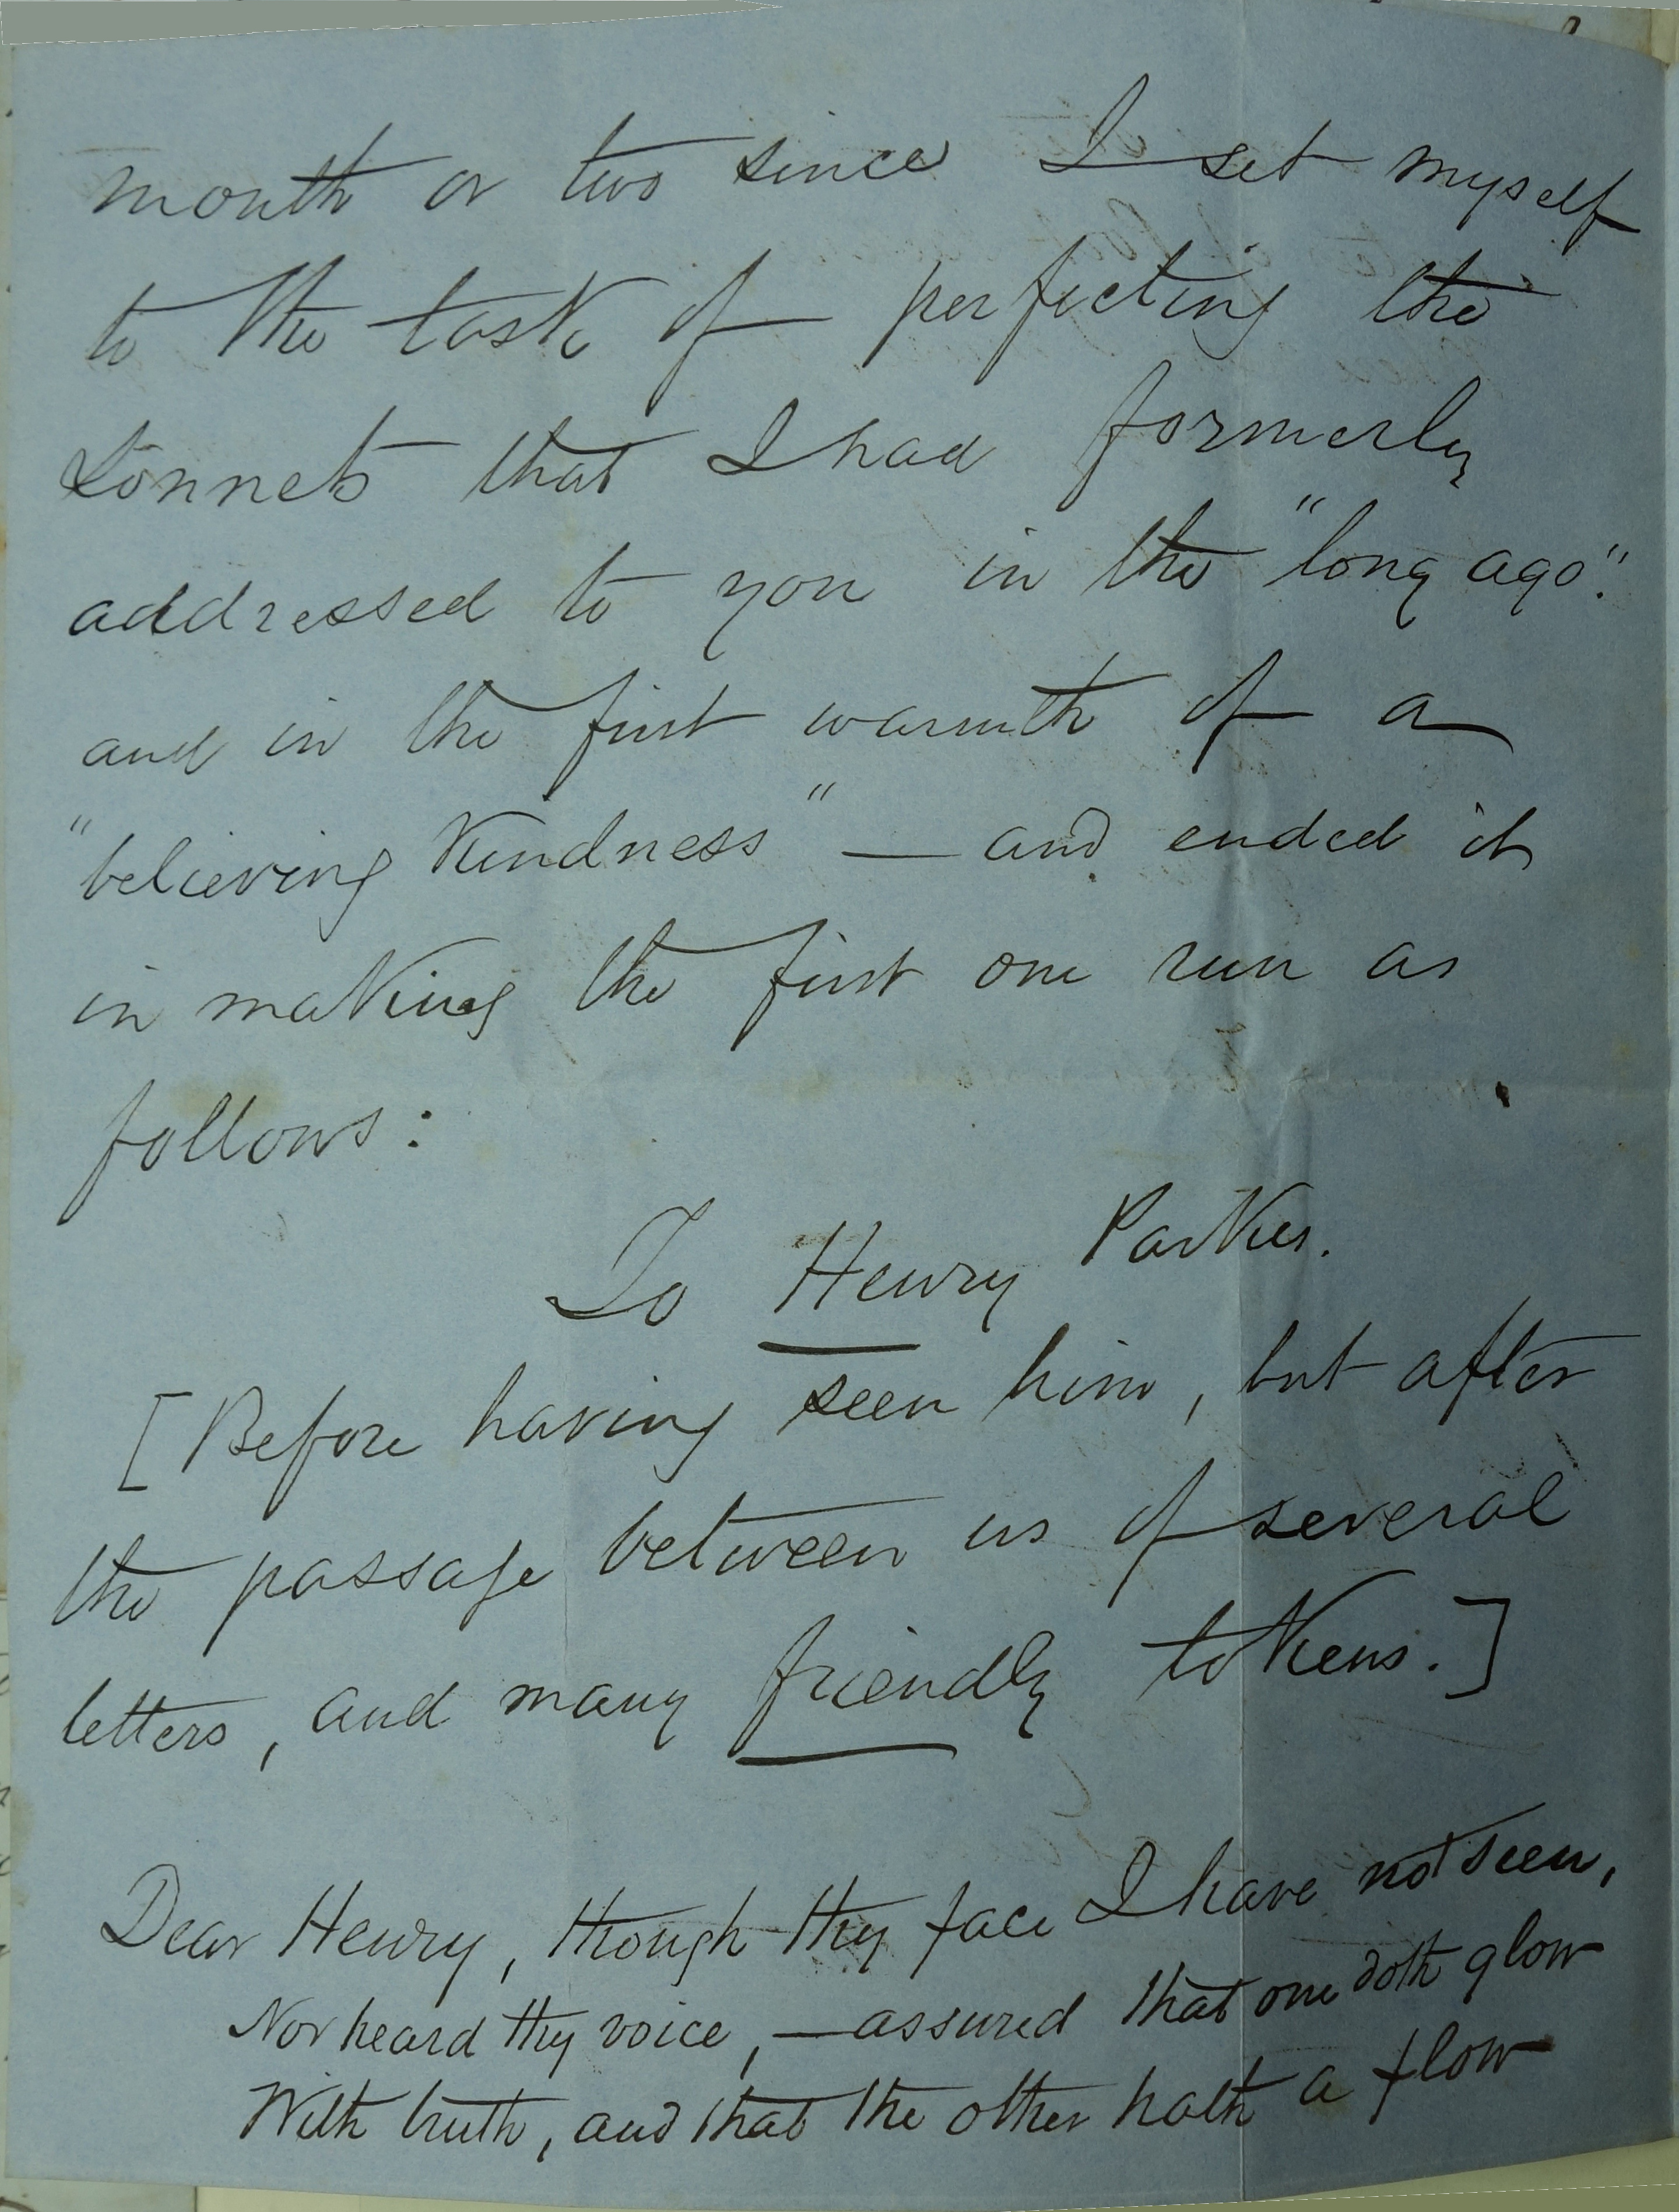 month or two since I set myself
to the task of perfecting the
Sonnets that I had formerly
addressed to you in the "long ago".
and in the first warmth of a
"believing kindness" — and ended it
in making the first one run as
follows:
To Henry Parkes.
[Before having seen him, but after
the passage between us of several
letters, and many friendly tokens.]
Dear Henry, though thy face I have not seen,
Nor heard thy voice, — assured that one doth glow
With truth, and that the other hath a flow